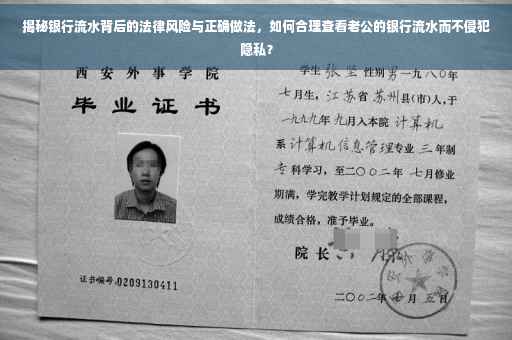 揭秘银行流水背后的法律风险与正确做法，如何合理查看老公的银行流水而不侵犯
隐私？
西安外事学院
毕业证书
证书编号:0209130411
学生张坚性别男一九八〇年
七月生，江苏省苏州县(市)人,于
一九九九年九月入本院计算机
系计算机信息管理专业三年制
专科学习，至二〇〇二年七月修业
期满，学完教学计划规定的全部课程，
成绩合格，准予毕业。
院长
二〇〇二年七月五日